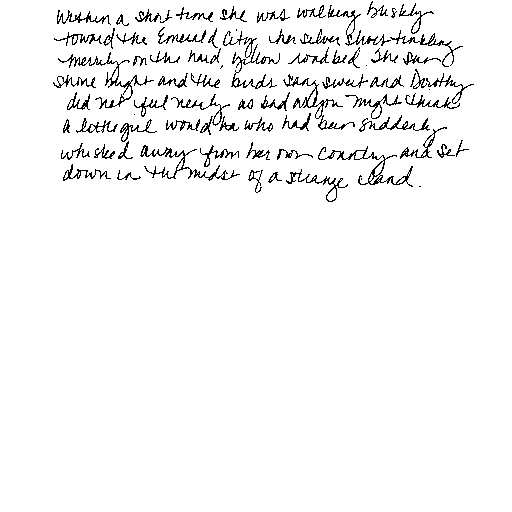 Within a short time she was walking briskly
toward the Emerald City, her silver shoes tinkling
merrily on the hard, yellow road bed. The sun
shone bright and the birds sang sweet and Dorothy
did not feel nearly as bad as you might think
a little girl would ha who had been suddenly
whisked away from her own country and set
down in the midst of a strange land.